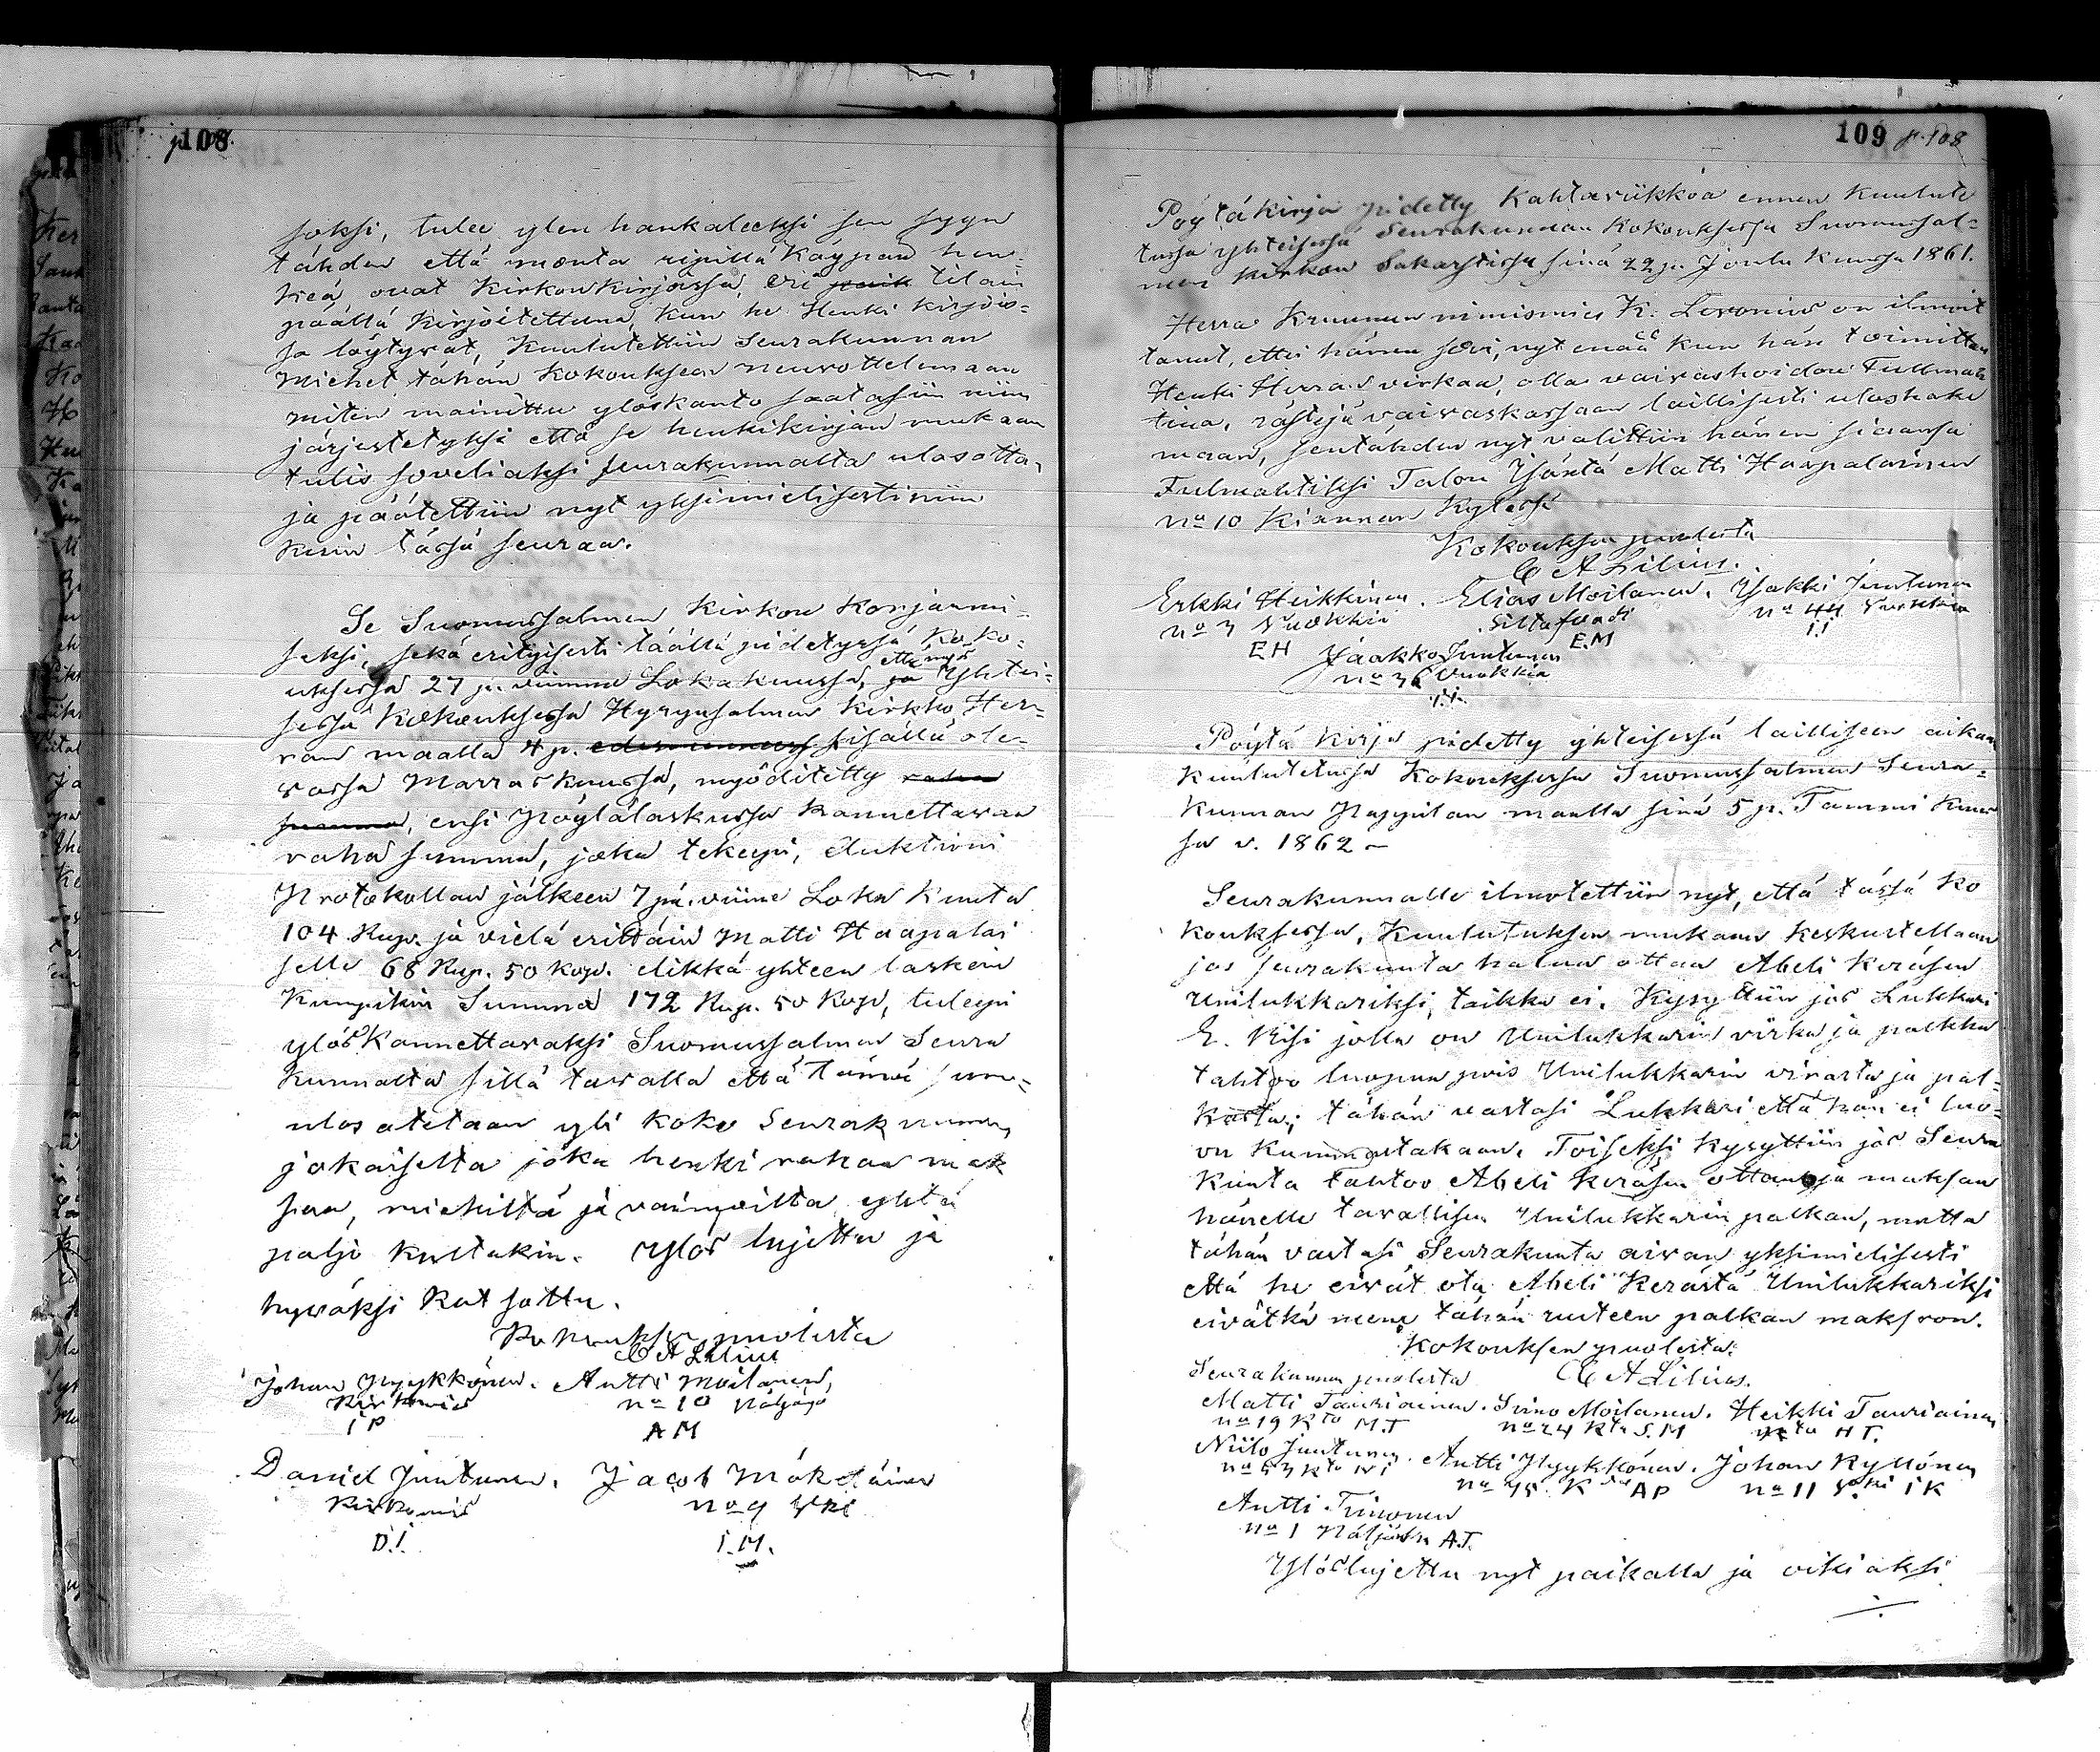 108
soksi, tulee ylen hankaleeksi sen syyn
tähden että monta ripillä käypää hen-
keä, ovat Kirkonkirjoissa, eri paik tilain
päällä kirjoitettuna, kun he Henki kirjois-
sa löytyvät, Kuulutettiin Seurakunnan
Miehet tähän Kokouksean neuvottelemaan
miten mainittu ylöskanto saatasiin niin
järjestetyksi että se henkikirjan mukaan
tulis soveliaksi seurakunnalta ulosotta,
ja päätettiin nyt yksimielisesti niin
kuin tässä seuraa.
Se Suomussalmen Kirkon Korjaami-
seksi, sekä erityisesti täällä pidetyssä Koko-
uksessa 27 p. viimme Lokakuussa, ja että myös Yhtei-
sessä Kokouksessa Hyrynsalmen Kirkko Her-
ran maalla 4 p. sisällä ole-
vassa Marraskuussa, myöditetty rahan
summa, ensi Pöytälaskussa kannettavaa
raha summa, joka tekeepi, Auktioni
Protokollan jälkeen 7 pä. viime Loka Kuuta
104 Rup. ja vielä erittäin Matti Haapalai
selle 68 Rup. 50 kop. elikkä yhteen laskein
Kumpikin Summa 172 Rup. 50 Kop, tuleepi
ylöskannettavaksi Suomussalmen Seura
kunnalta sillä tavalla että tämä sum-
ulos otetaan yli koko Seurakunnan,
jokaiselta joka henki rahaa mak
saa, miehiltä ja vaimoilta yhtä
paljo kultakin. Ylös lujettu ja
hyväksi katsottu.
Kokouksen puolesta
C A Lilius
Johan Pyykkönen. Antti Moilanen,
Kirkomies no 10 Näljängö
I P AM
Daniel Juntunen. Jacob Mäkeläinen
Kirkomies no 9 Yki
D.I. I.M.
109 p. 108
Pöytäkirja pidetty Kahtaviikkoa ennen Kuulute
tussa yhteisessä Seurakunnan Kokouksessa Suomussal-
men Kirkon Sakastissa sinä 22 p. Joulu kuussa 1861.
Herra Kruunun nimismies K. Leronius on ilmoit
tanut, ettei hänen sovi, nyt enää kun hän toimittaa
Henki Herran virkaa, olla vaivashoidon Fullmah
tina, rästejä vaivaskassaan laillisesti uloshake
maan, sentähden nyt valittiin hänen siaansa
Fulmahtiksi Talon Isäntä Matti Haapalainen
no 10 Kiannan Kylässä
Kokouksen puolesta
C A Lilius.
Erkki Heikkinen. Elias Moilanen, Jaakki Juntunen
no 3 Vuokkia Siltasuadi no 44 Vuokkia
EH E.M I.I
Jaakko Juntunen
no 36 Vuokkia
I.I.
Pöytä kirja pidetty yhteisessä lailliseen aikaan
Kuulutetussa Kokouksessa Suomussalmen Seura-
kunnan Pappilan maalla sinä 5 p. Tammi kuus
sa v. 1862 –
Seurakunnalle ilmotettiin nyt, että tässä Ko
kouksessa, Kuulutuksen mukaan keskustellaan
jos seurakunta haluaa ottaa Abeli Keräsen
Unilukkariksi, taikka ei. Kysyttiin jos Lukkari
E. Kisi jolla on Unilukkarin virka ja palkka
tahtoo luopua pois Unilukkarin virasta ja pal-
kasta; tähän vastasi Lukkari että hän ei luo-
vu kummastakaan. Toiseksi kysyttiin jos Seura
kunta tahtoo Abeli Keräsen ottaa ja maksaa
hänelle tavallisen Unilukkarin palkan, mutta
tähän vastasi Seurakunta aivan yksimielisesti
että he eivät ota Abeli Kerästä Unilukkariksi
eivätkä mene tähän uuteen palkan maksoon.
Kokouksen puolesta.
Seurakunnan puolesta C A Lilius.
Matti Tauriainen. Simo Moilanen. Heikki Tauriainen
no 19 Kta M.T no 24 Kta S.M Kta HT.
Niilo Juntunen. Antti Pyykkönen. Johan Kyllönen
no 53 Kta NI no 45 K AP no 11 IK
Antti Timonen
no 1 Näljänkä A.T.
Ylöslujettu nyt paikalla ja oikiaksi